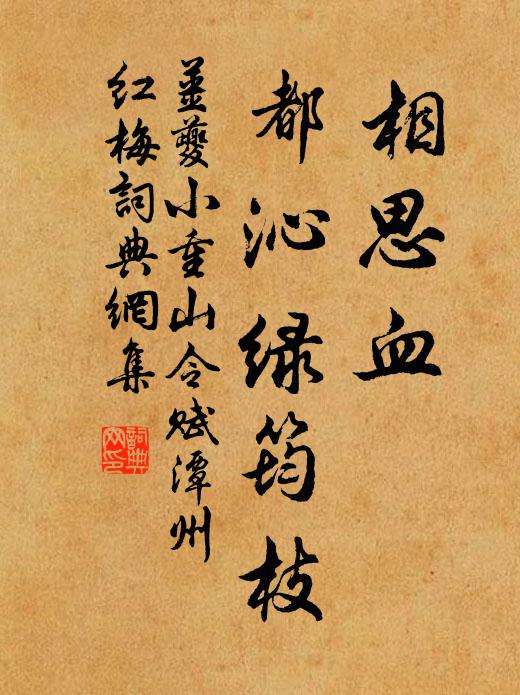 相思血
都沁绿筠枝
姜夔小重山令赋潭州
红梅詞典網集
詞典网印